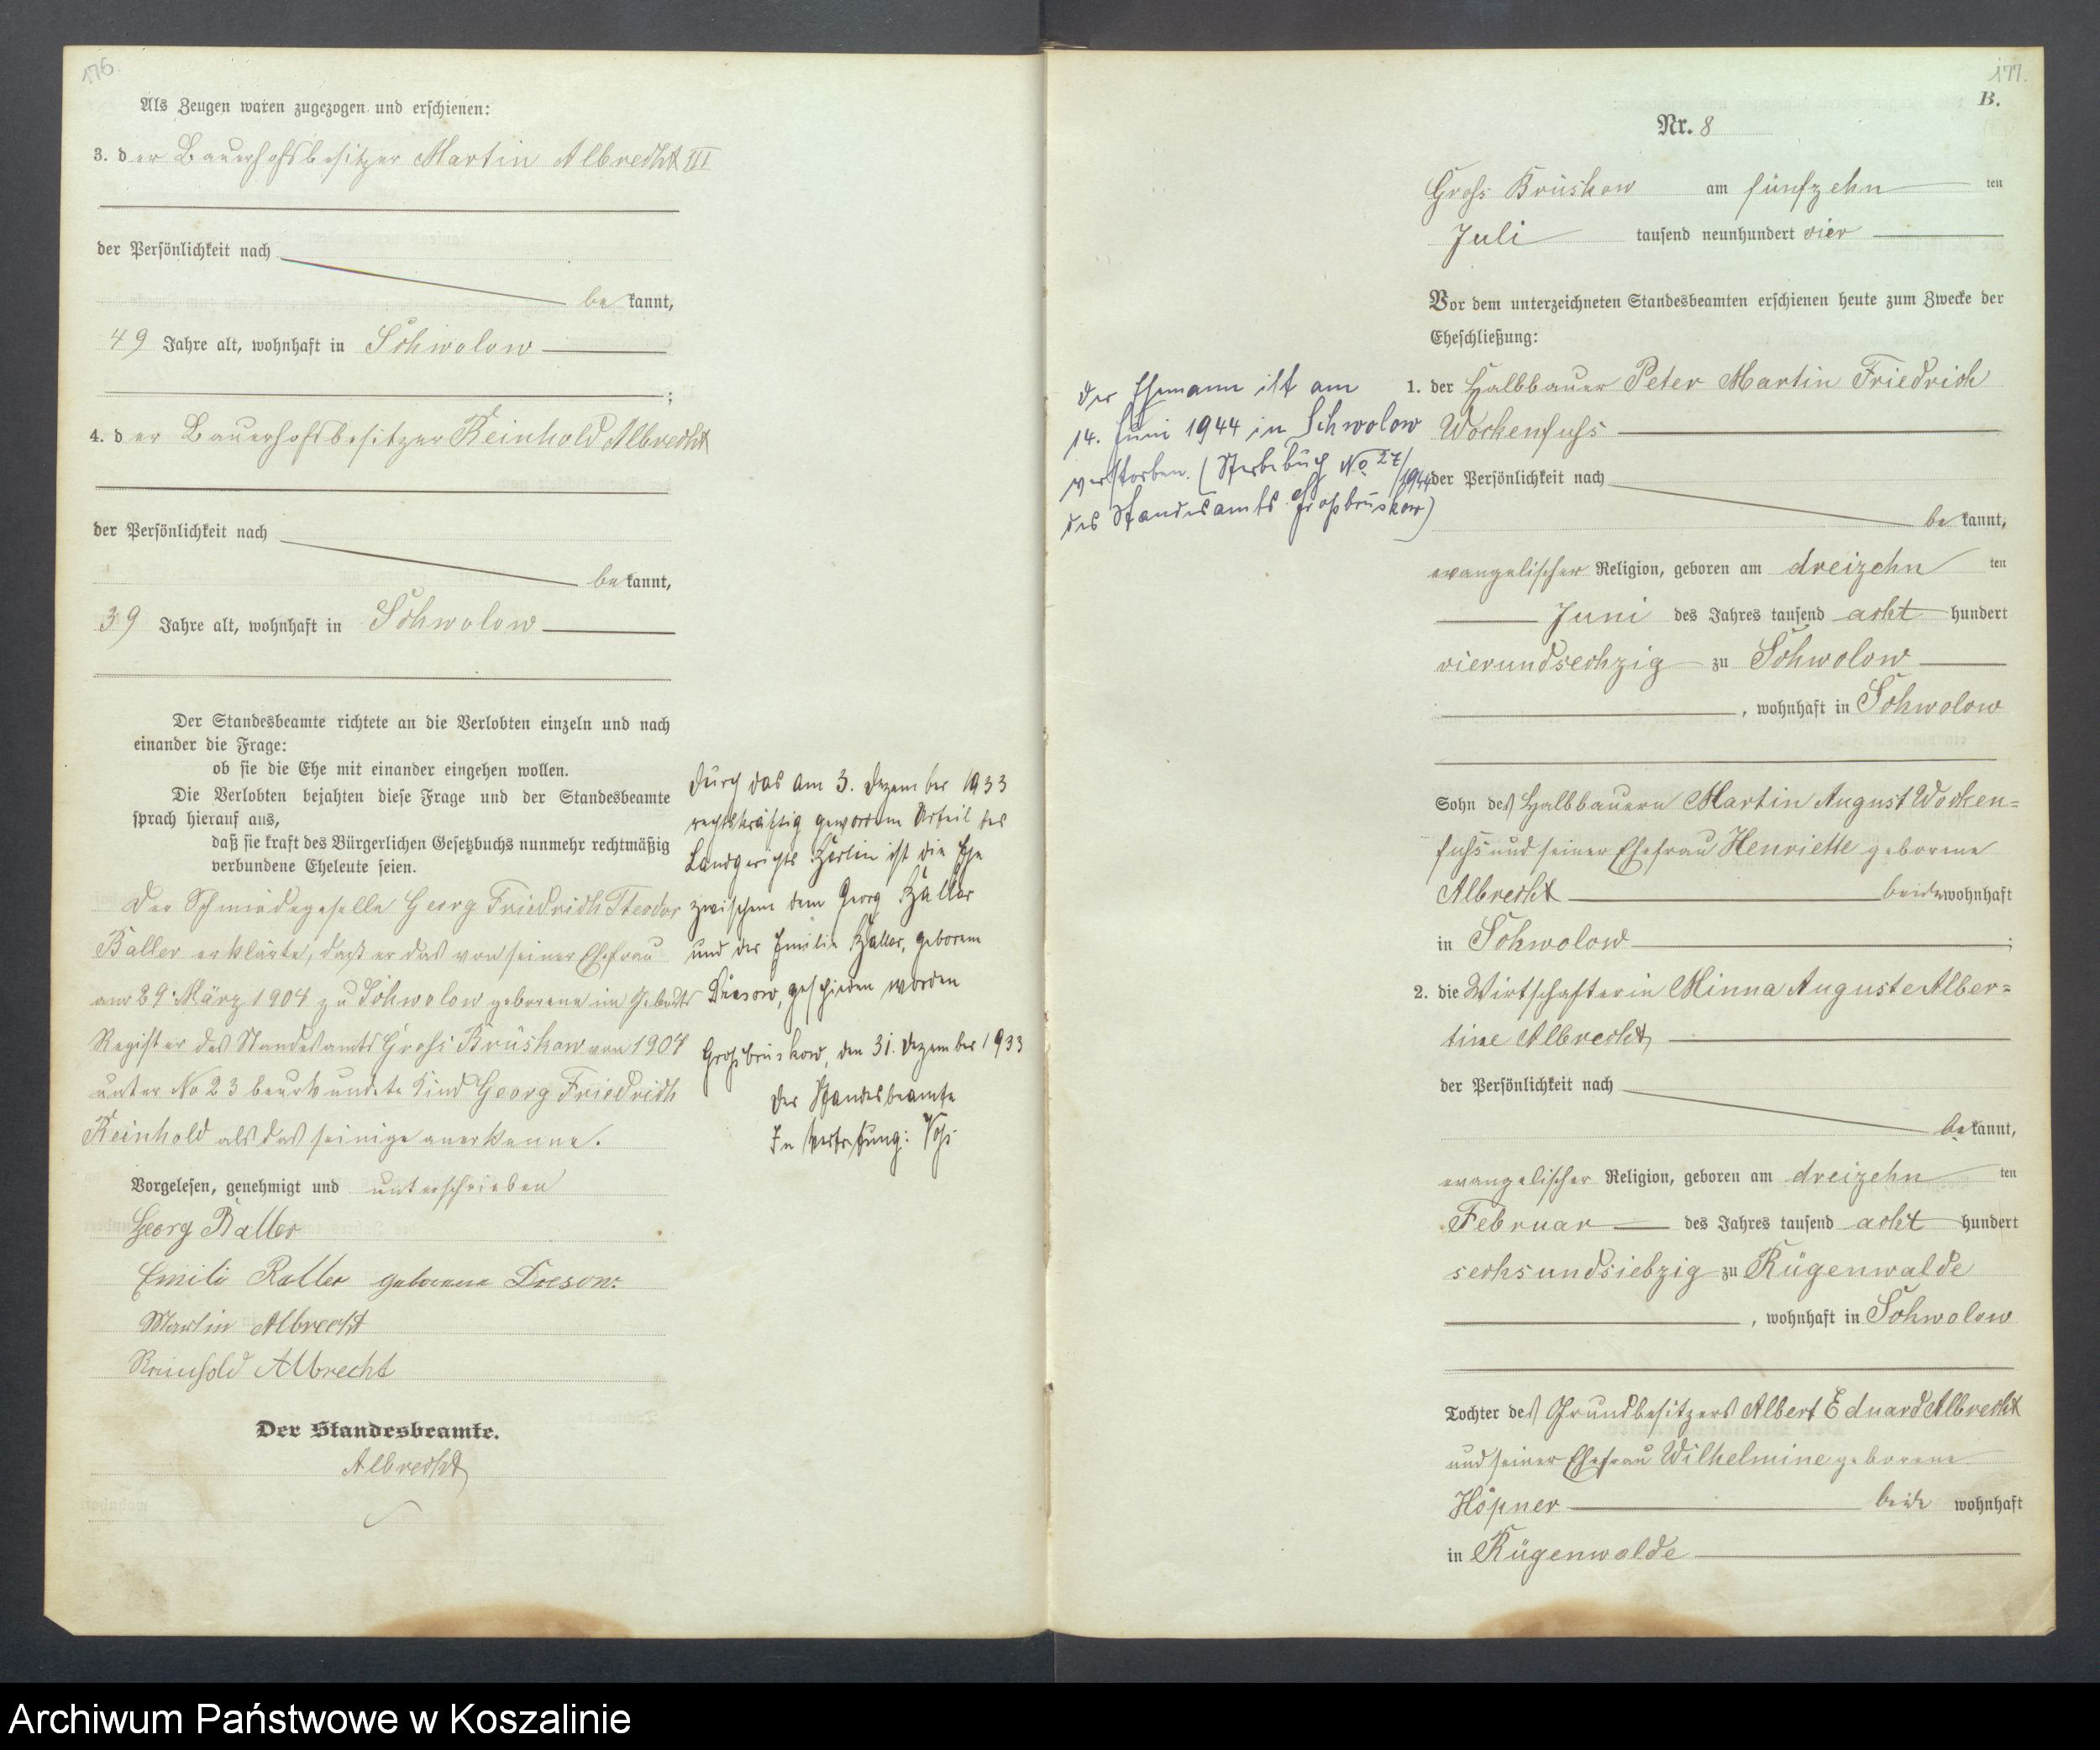 176.
Als Zeugen waren zugezogen und erschienen:
3. der Bauerhofsbesitzer Martin Albrecht III
der Persönlichkeit nach
bekannt,
49 Jahre alt, wohnhaft in Schwolow
;
4. der Bauerhofsbesitzer Reinhold Albrecht
der Persönlichkeit nach
bekannt,
39 Jahre alt, wohnhaft in Schwolow
Der Standesbeamte richtete an die Verlobten einzeln und nach
einander die Frage:
ob sie die Ehe mit einander eingehen wollen.
Die Verlobten bejahten diese Frage und der Standesbeamte
sprach hierauf aus,
daß sie kraft des Bürgerlichen Gesetzbuchs nunmehr rechtmäßig
verbundene Eheleute seien.
Der Schmiedegeselle Georg Friedrich Theodor
Baller erklärte, daß er das von seiner Ehefrau
am 29. März 1904 zu Schwolow geborene im Geburts
Register des Standesamts Gross Brüskow von 1904
unter No 23 beurkundete Kind Georg Friedrich
Reinhold als das seinige anerkenne.
Vorgelesen, genehmigt und unterschrieben
Georg Baller
Emilie Baller geborene Dresow.
Martin Albrecht
Reinhold Albrecht
Der Standesbeamte.
Albrecht
Durch das am 3. Dezember 1933
rechtskräftig gewordene Urteil des
Landgerichts Berlin ist die Ehe
zwischen dem Georg Baller
und der Emilie Baller, geborene
Dresow, geschieden worden
Großbrüskow, den 31. Dezember 1933
Der Standesbeamte
In Vertretung: Voß
177.
B.
Nr. 8
Gross Brüskow am fünfzehn ten
Juli tausend neunhundert vier
Vor dem unterzeichneten Standesbeamten erschienen heute zum Zwecke der
Eheschließung:
1. der Halbbauer Peter Martin Friedrich
Wockenfuss
der Persönlichkeit nach
bekannt,
evangelischer Religion, geboren am dreizehn ten
Juni des Jahres tausend acht hundert
vierundsechzig zu Schwolow
, wohnhaft in Schwolow
Sohn des Halbbauern Martin August Wocken=
fuss und seiner Ehefrau Henriette geborene
Albrecht beide wohnhaft
in Schwolow ;
2. die Wirtschafterin Minna Auguste Alber=
tine Albrecht
der Persönlichkeit nach
bekannt,
evangelischer Religion, geboren am dreizehn ten
Februar des Jahres tausend acht hundert
sechsundsiebzig zu Rügenwalde
, wohnhaft in Schwolow
Tochter des Grundbesitzers Albert Eduard Albrecht
und seiner Ehefrau Wilhelmine geborene
Höpner beide wohnhaft
in Rügenwalde
Der Ehemann ist am
14. Juni 1944 in Schwolow
verstorben. (Sterbebuch No 27/1944
des Standesamts Großbrüskow)
Archiwum Państwowe w Koszalinie